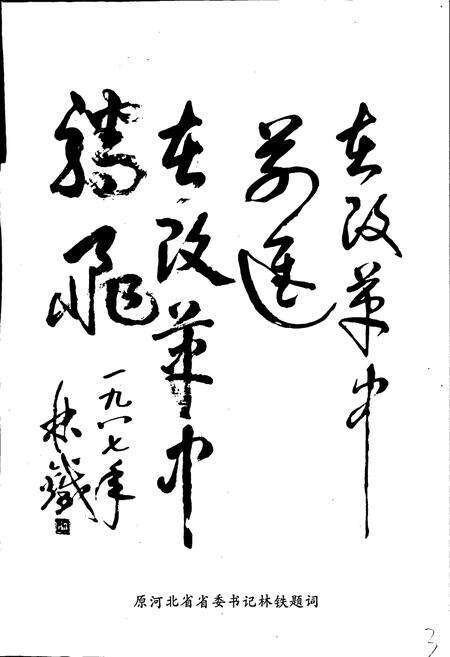 在改革中
前進
在改革中
腾飛
一九八七年
林鐵
原河北省省委书记林铁题词
3